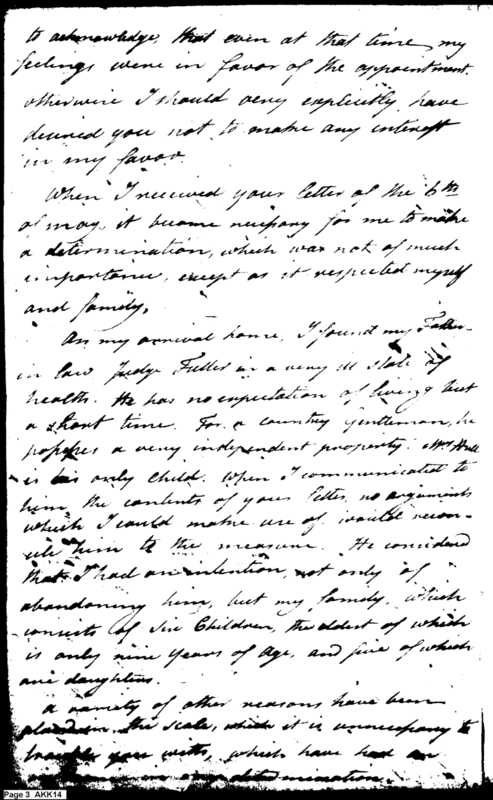 to acknowledge, that even at that time, my
feelings were in favor of the appointment.
otherwise I should very explicitly have
desired you not to make any interest
in my favor.
When I received your letter of the 6th
of may, it became necessary for me to make
a determination, which was not of much
importance, except as it respected myself
and family.
On my arrival home, I found my Father-
in law Judge Fuller in a very ill state of
health. He has no expectation of living but
a short time. For a country Gentleman, he
possesses a very independent property. Mrs Hull
is his only Child. When I communicated to
him the contents of your letter, no arguments
which I could make use of would recon-
cile him to the measure. He considered
that I had an intention, not only of
abandoning him, but my family, which
consists of Six Children, the oldest of which
is only nine years of age, and five of which
are daughters.
a variety of other reasons have been
placed in the scale, which it is unnecessary to
trouble you with, which have had an
in my determination.
Page 3 AKK14